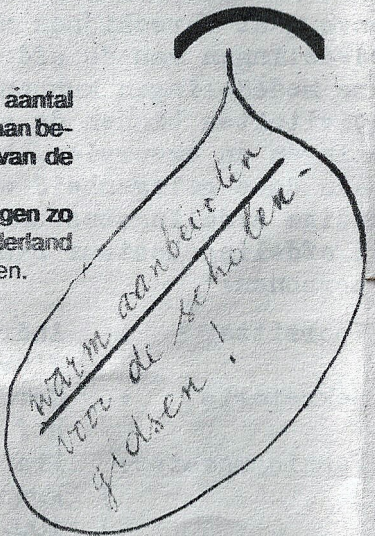 aantal
aan be-
van de
gen zo
derland
en.
warm aanbevolen
voor de scholen-
gidsen !